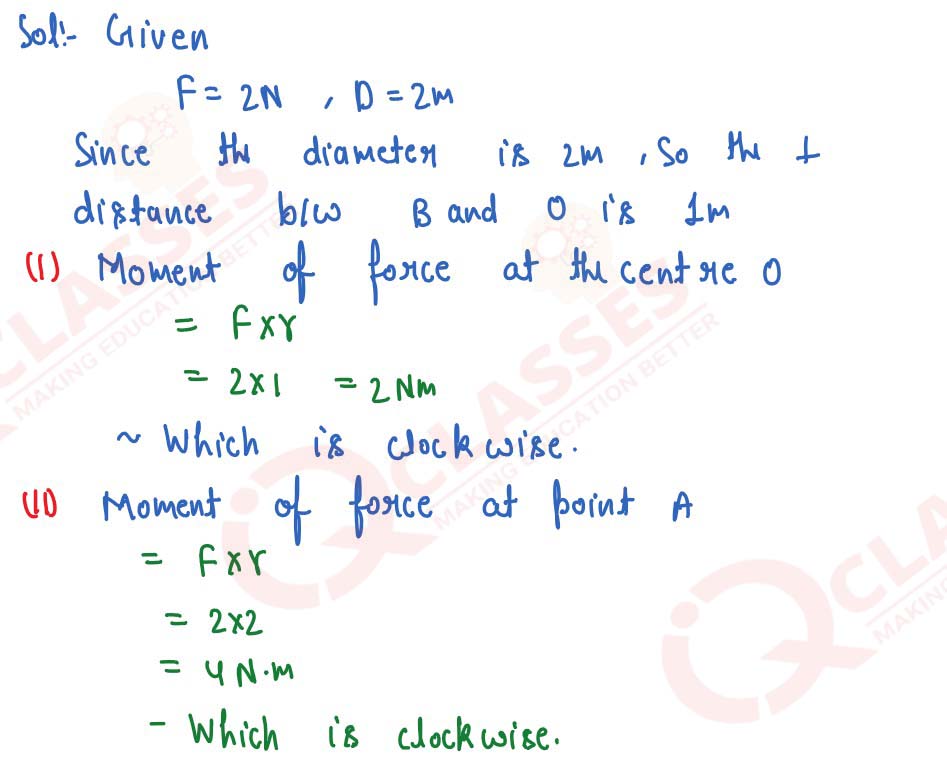 Sol:- Given
F = 2N , D = 2m
Since the diameter is 2m , So the ⊥
distance b/w B and O is 1m
(i) Moment of force at the centre O
= F×r
= 2×1 = 2 Nm
~ Which is clockwise.
(ii) Moment of force at point A
= F×r
= 2×2
= 4 N·m
- Which is clockwise.
iQ CLASSES
MAKING EDUCATION BETTER